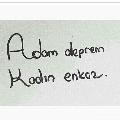 Adam deprem
Kadın enkaz.